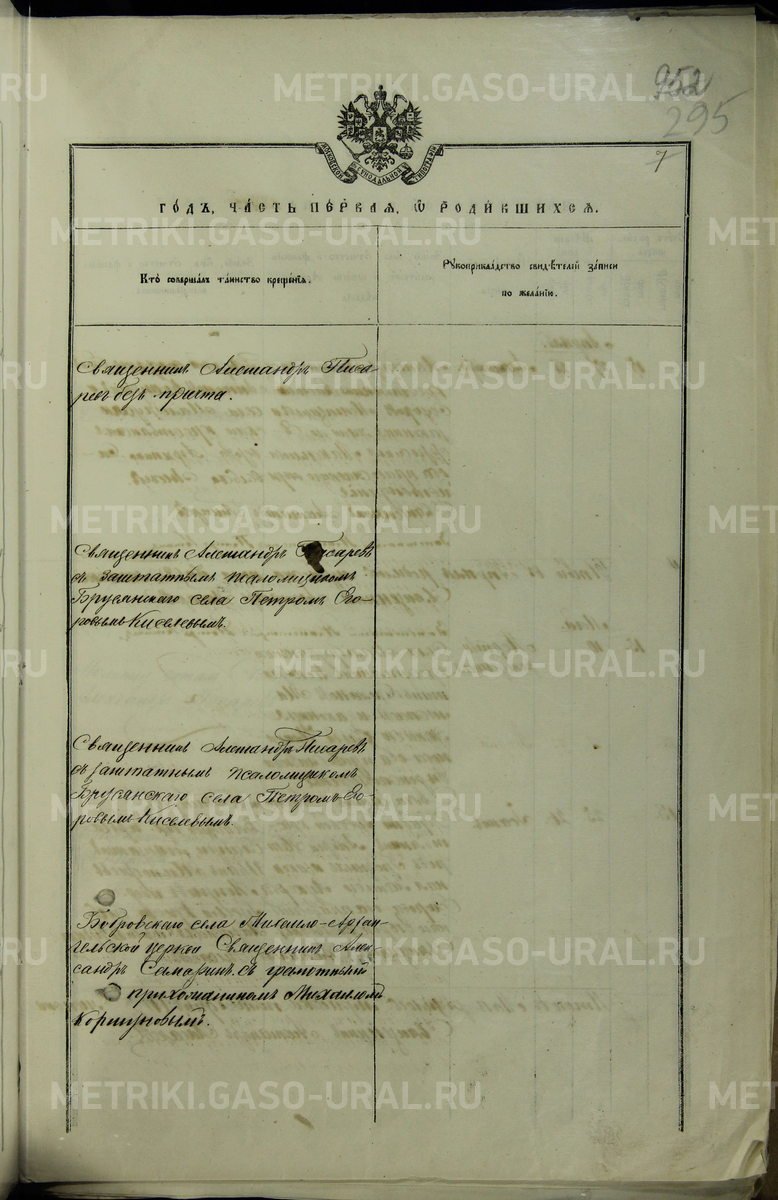 952
295
7
МОСКОВСКОЙ СѴНОДАЛЬНОЙ ТИПОГРАФІИ
ГО́ДЪ, ЧА́СТЬ ПЕ́РВАЯ, Ѽ РОДИ́ВШИХСѦ.
Кто̀ соверша́лъ та́инство креще́нїѧ.
Рꙋкоприкла́дство свидѣ́телей за́писи
по жела́нїю.
Священникъ Александръ Писа-
ревъ безъ причта.
Священникъ Александръ Писаревъ
съ заштатнымъ псаломщикомъ
Брусянскаго села Петромъ Его-
ровымъ Киселевымъ.
Священникъ Александръ Писаревъ
съ заштатнымъ псаломщикомъ
Брусянскаго села Петромъ Его-
ровымъ Киселевымъ.
Бобровскаго села Михаило-Архан-
гельской церкви Священникъ Алек-
сандръ Самаринъ съ грамотный
прихожаниномъ Михаиломъ
Коршуновымъ.
METRIKI.GASO-URAL.RU